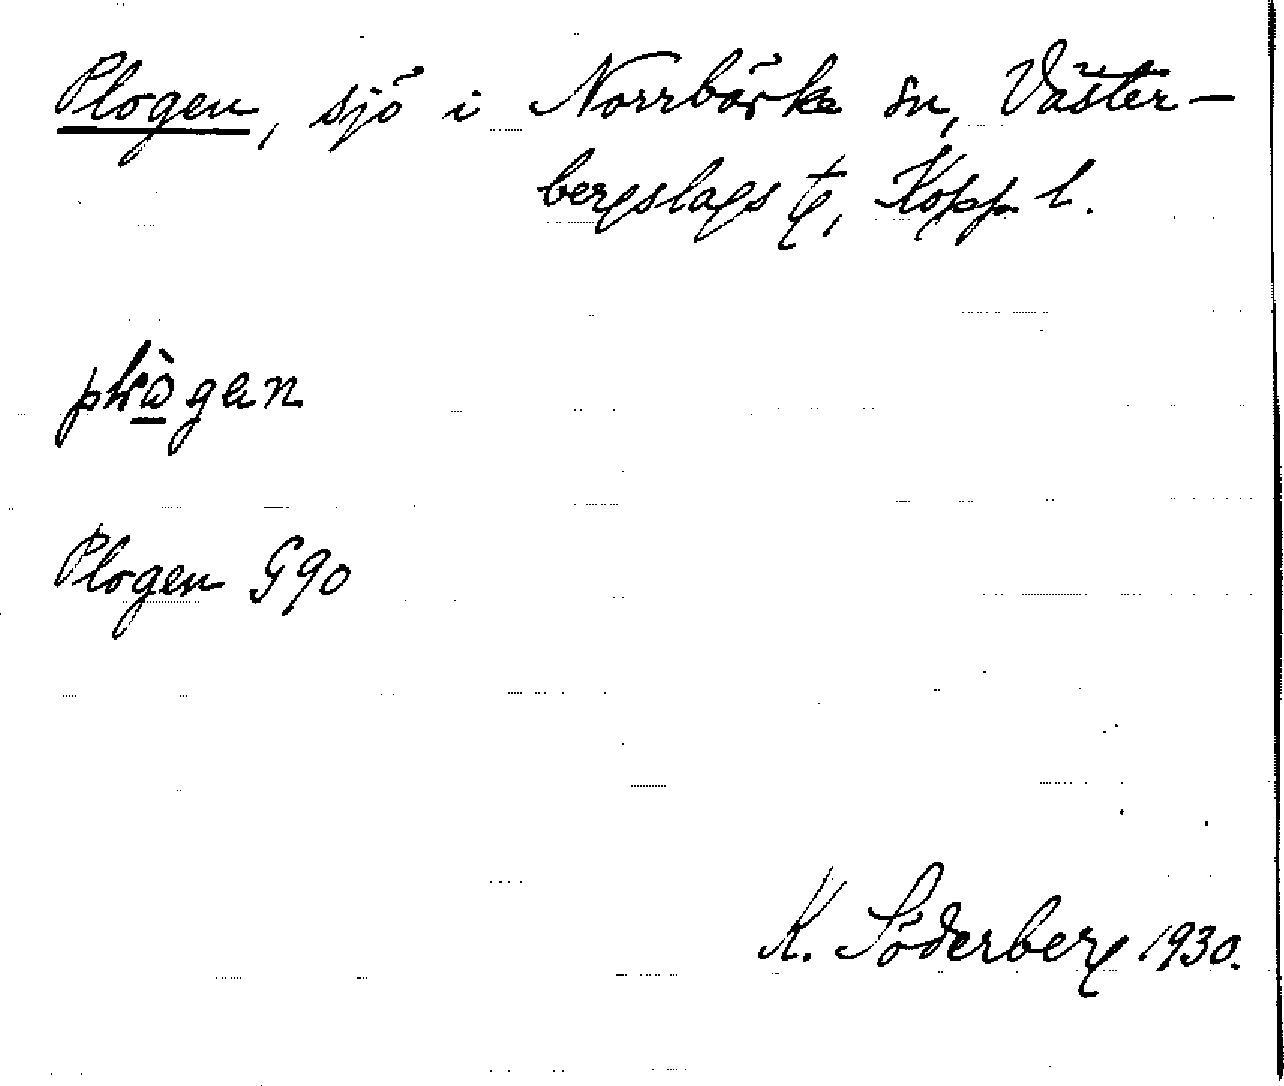 Plogen, sjö i Norrbärke sn, Väster-
bergslags tg, Kopp. l.
plògen
Plogen G90
K. Söderberg 1930.